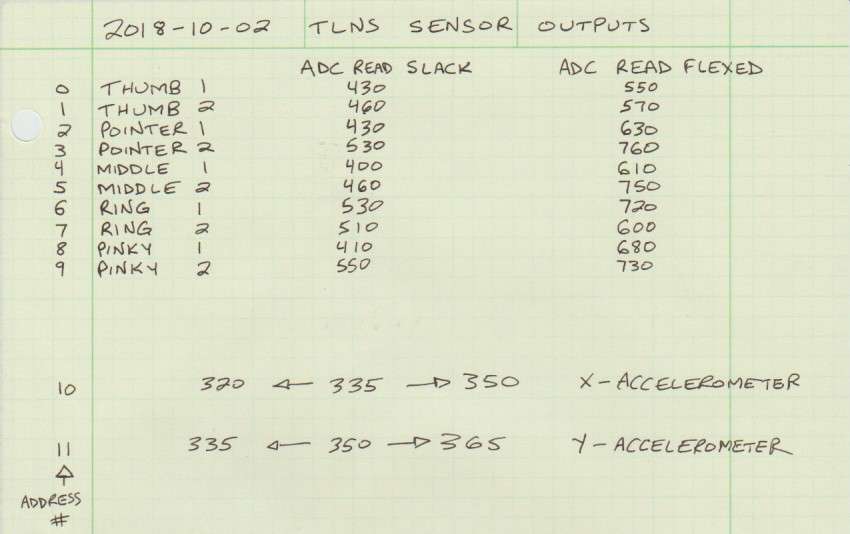 2018-10-02 TLNS SENSOR OUTPUTS
ADC READ SLACK ADC READ FLEXED
0 THUMB 1 430 550
1 THUMB 2 460 570
2 POINTER 1 430 630
3 POINTER 2 530 760
4 MIDDLE 1 400 610
5 MIDDLE 2 460 750
6 RING 1 530 720
7 RING 2 510 600
8 PINKY 1 410 680
9 PINKY 2 550 730
10 320 ← 335 → 350 X-ACCELEROMETER
11 335 ← 350 → 365 Y-ACCELEROMETER
ADDRESS
#